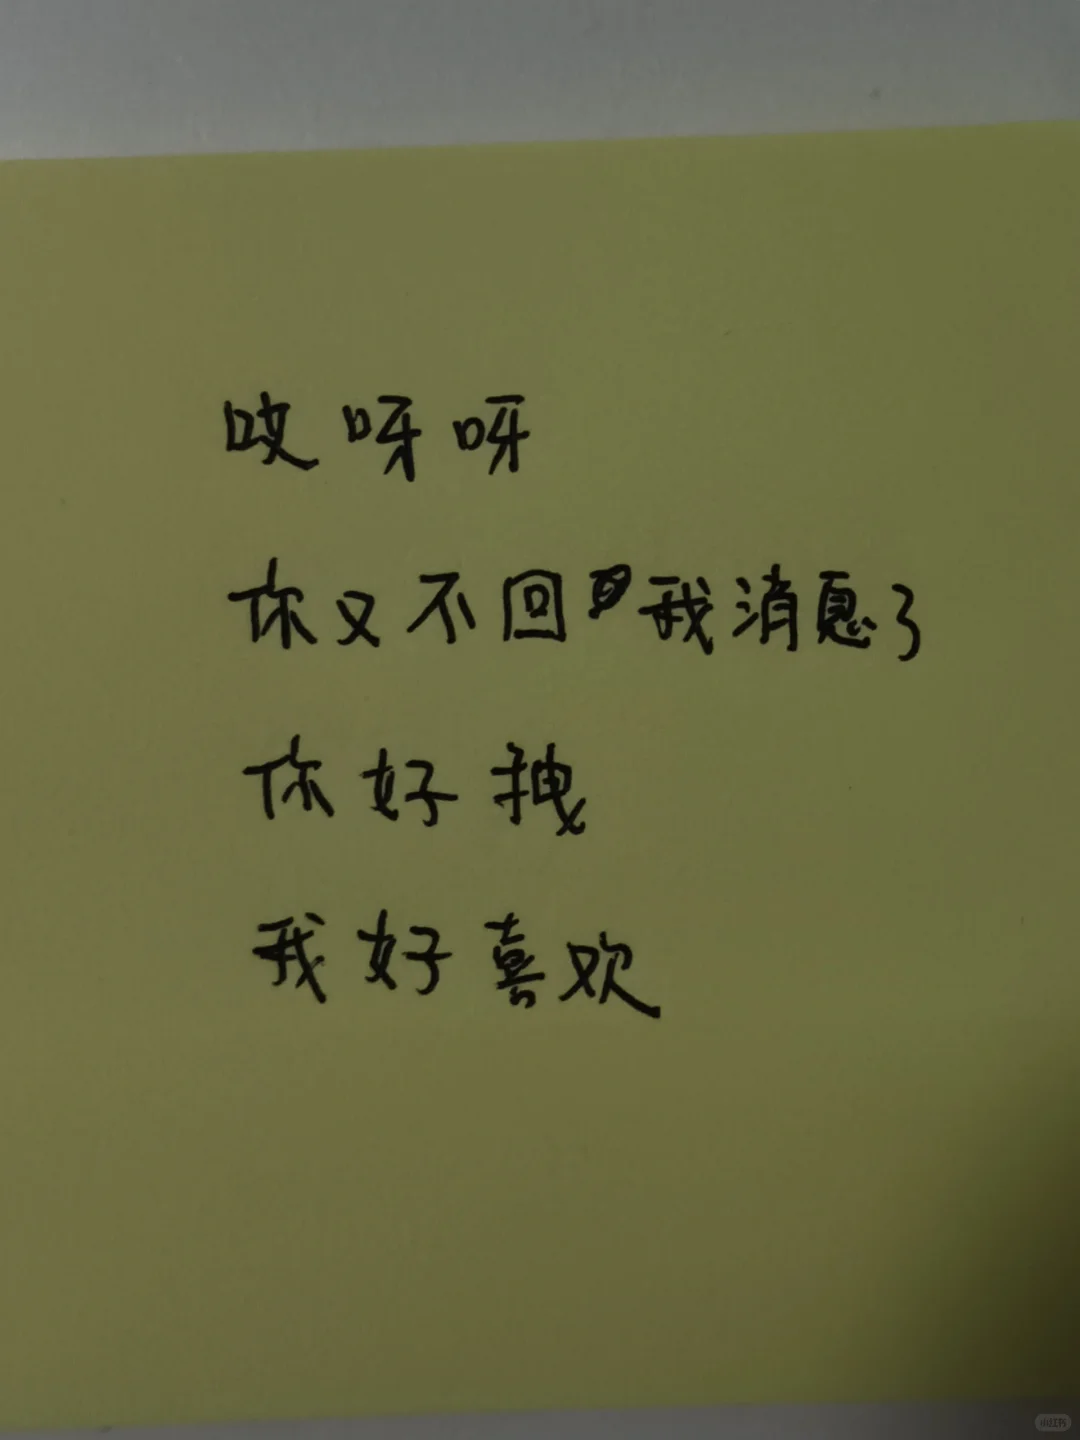 哎呀呀
你又不回我消息了
你好拽
我好喜欢
小红书